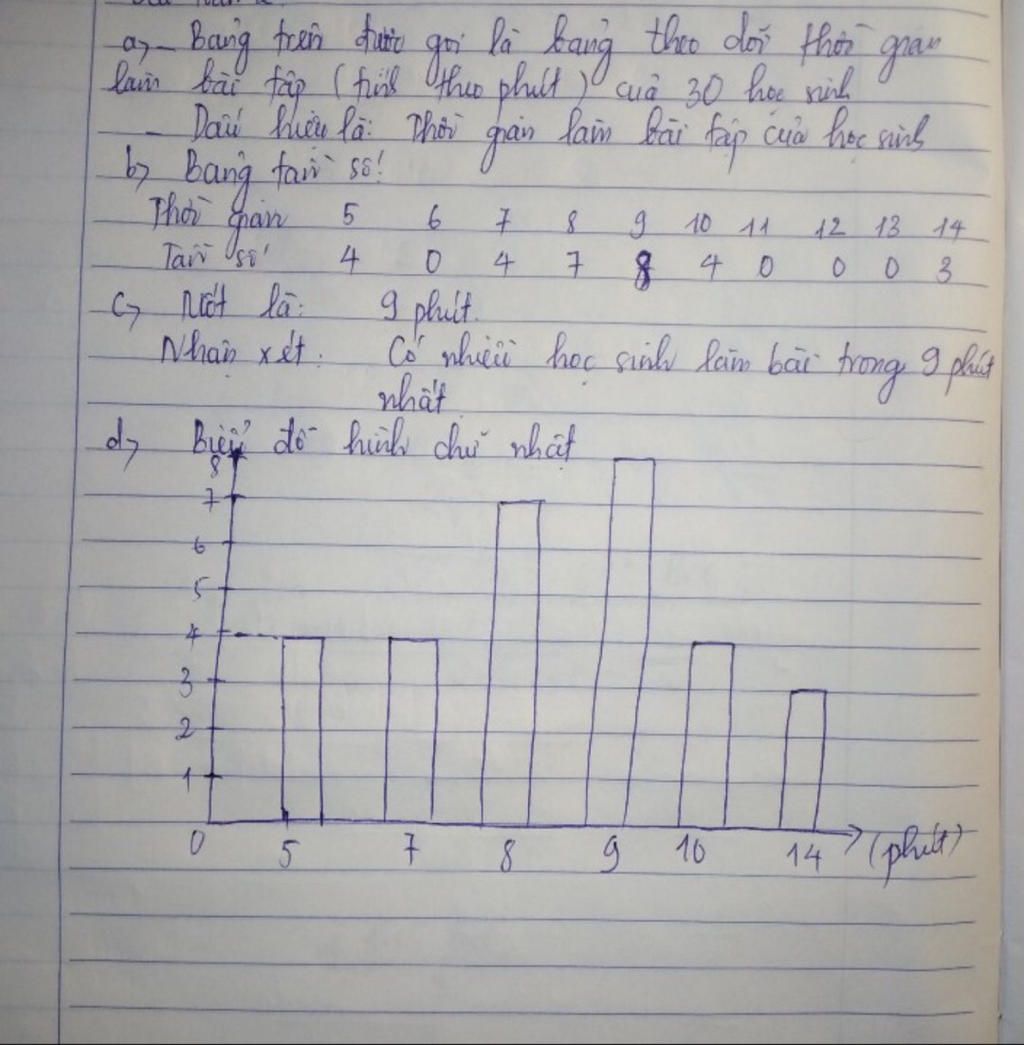 a, - Bảng trên được gọi là bảng theo dõi thời gian
làm bài tập (tính theo phút) của 30 học sinh
- Dấu hiệu là: Thời gian làm bài tập của học sinh
b, Bảng tần số:
Thời gian 5 6 7 8 9 10 11 12 13 14
Tần số 4 0 4 7 8 4 0 0 0 3
c, Mốt là: 9 phút.
Nhận xét: Có nhiều học sinh làm bài trong 9 phút
nhất
d, Biểu đồ hình chữ nhật
8
7
6
5
4
3
2
1
0 5 7 8 9 10 14 (phút)